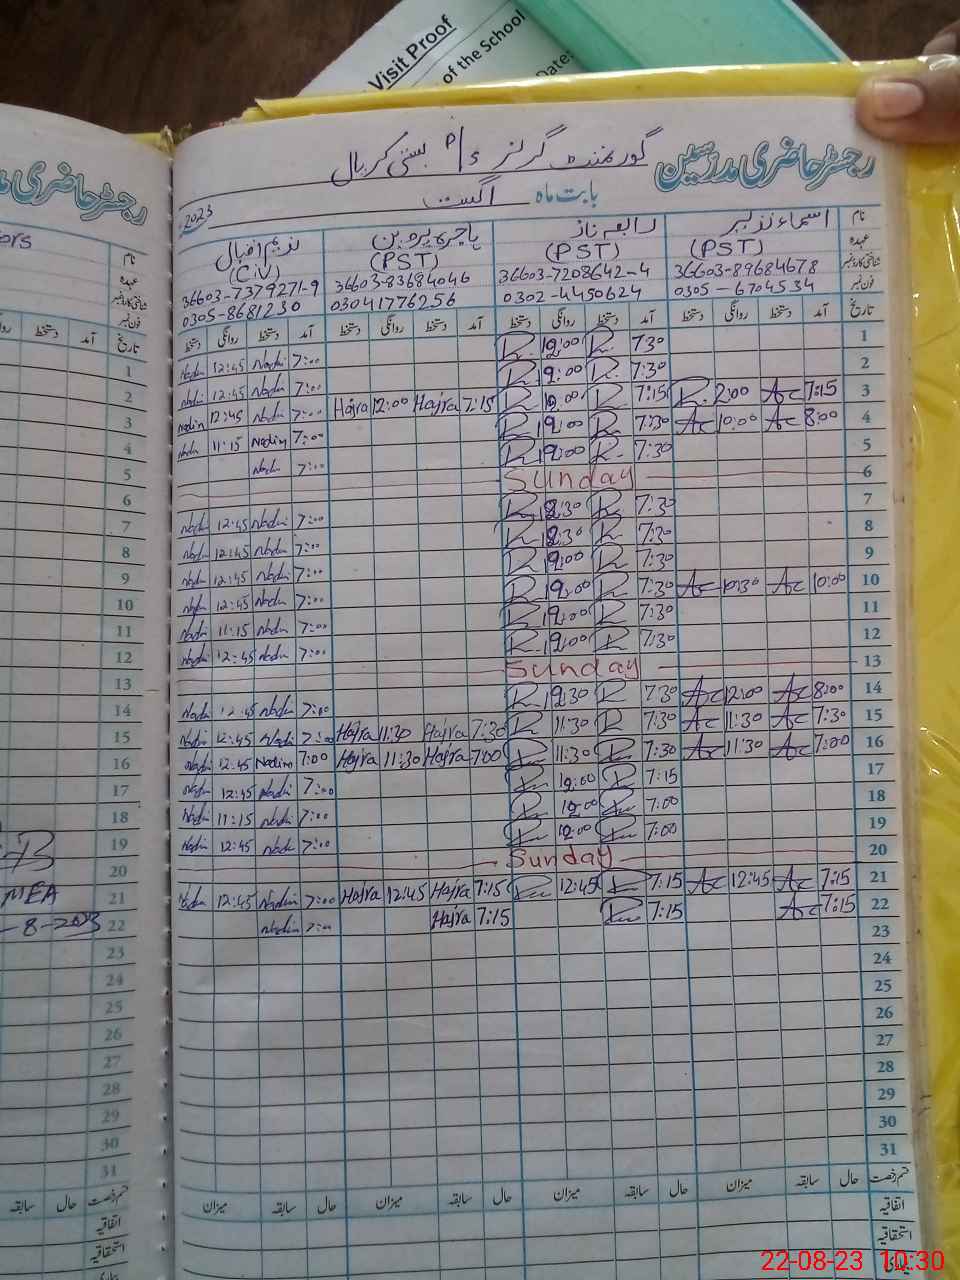 Visit Proof
of the School
Date:
رجسٹر حاضری مدرسین
گورنمنٹ گرلز P/S بستی کریال
بابت ماہ اگست 2023
نام اسماء نذیر رابعہ ناز ہاجرہ پروین ندیم اقبال
عہدہ (PST) (PST) (PST) (C.IV)
شناختی کارڈ نمبر 36603-89684678 36603-7208642-4 36603-83684046 36603-7379271-9
فون نمبر 0305-6704534 0302-4450624 03041776256 0305-8681230
تاریخ آمد دستخط روانگی دستخط آمد دستخط روانگی دستخط آمد دستخط روانگی دستخط آمد دستخط روانگی دستخط
1 7:30 R. 12:00 R. 7:00 Nadim 12:45 Nadim
2 7:30 R. 12:00 R. 7:00 Nadim 12:45 Nadim
3 7:15 Ac 2:00 R. 7:15 R 12:00 R 7:15 Hajra 12:00 Hajra 7:00 Nadim 12:45 Nadim
4 8:00 Ac 10:00 Ac 7:30 R. 12:00 R 7:00 Nadim 11:15 Nadim
5 7:30 R. 12:00 R 7:00 Nadim
6 Sunday
7 7:30 R 12:30 R 7:00 Nadim 12:45 Nadim
8 7:30 R 12:30 R 7:00 Nadim 12:45 Nadim
9 7:30 R 12:00 R 7:00 Nadim 12:45 Nadim
10 10:00 Ac 10:30 Ac 7:30 R 12:00 R 7:00 Nadim 12:45 Nadim
11 7:30 R 12:00 R 7:00 Nadim 11:15 Nadim
12 7:30 R 12:00 R 7:00 Nadim 12:45 Nadim
13 Sunday
14 8:00 Ac 12:00 Ac 7:30 R 12:30 R 7:00 Nadim 12:45 Nadim
15 7:30 Ac 11:30 Ac 7:30 R 11:30 R 7:30 Hajra 11:30 Hajra 7:00 Nadim 12:45 Nadim
16 7:00 Ac 11:30 Ac 7:30 R 11:30 R 7:00 Hajra 11:30 Hajra 7:00 Nadim 12:45 Nadim
17 7:15 R 12:00 R 7:00 Nadim 12:45 Nadim
18 7:00 R 12:00 R 7:00 Nadim 11:15 Nadim
19 7:00 R 12:00 R 7:00 Nadim 12:45 Nadim
20 Sunday
21 7:15 Ac 12:45 Ac 7:15 R 12:45 R 7:15 Hajra 12:45 Hajra 7:00 Nadim 12:45 Nadim
22 7:15 Ac 7:15 R 7:15 Hajra 7:00 Nadim
23
24
25
26
27
28
29
30
31
قسم رخصت حال سابقہ میزان حال سابقہ میزان حال سابقہ میزان حال سابقہ میزان
اتفاقیہ
استحقاقیہ
بیماری
رجسٹر حاضری
ors
نام
عہدہ
شناختی کارڈ نمبر
فون نمبر
تاریخ آمد دستخط
1
2
3
4
5
6
7
8
9
10
11
12
13
14
15
16
17
18
19
20
21 MEA
22 -8-2023
23
24
25
26
27
28
29
30
31
قسم رخصت حال سابقہ
اتفاقیہ
استحقاقیہ
بیماری
22-08-23 10:30